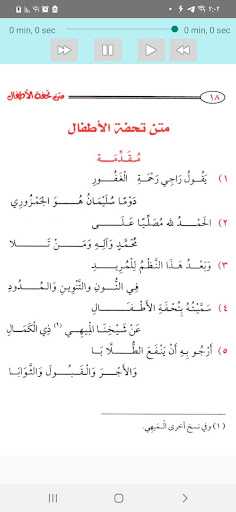 ٢:٠٢
0 min, 0 sec
0 min, 0 sec
متن تحفة الأطفال
١٨
متن تحفة الأطفال
مُقَدِّمَة
١) يَقُولُ رَاجِي رَحْمَةِ الْغَفُورِ
دَوْمًا سُلَيْمَانُ هُوَ الْجَمْزُورِي
٢) الْحَمْدُ لِلهِ مُصَلِّيًا عَلَى
مُحَمَّدٍ وَآلِهِ وَمَنْ تَلَا
٣) وَبَعْدُ هَذَا النَّظْمُ لِلْمُرِيدِ
فِي النُّونِ وَالتَّنْوِينِ وَالْمُدُودِ
٤) سَمَّيْتُهُ بِتُحْفَةِ الْأَطْفَالِ
عَنْ شَيْخِنَا الْمِيهِي (١) ذِي الْكَمَالِ
٥) أَرْجُو بِهِ أَنْ يَنْفَعَ الطُّلَّابَا
وَالْأَجْرَ وَالْقَبُولَ وَالثَّوَابَا
(١) وفي نسخ أخرى الْمَيهِي.